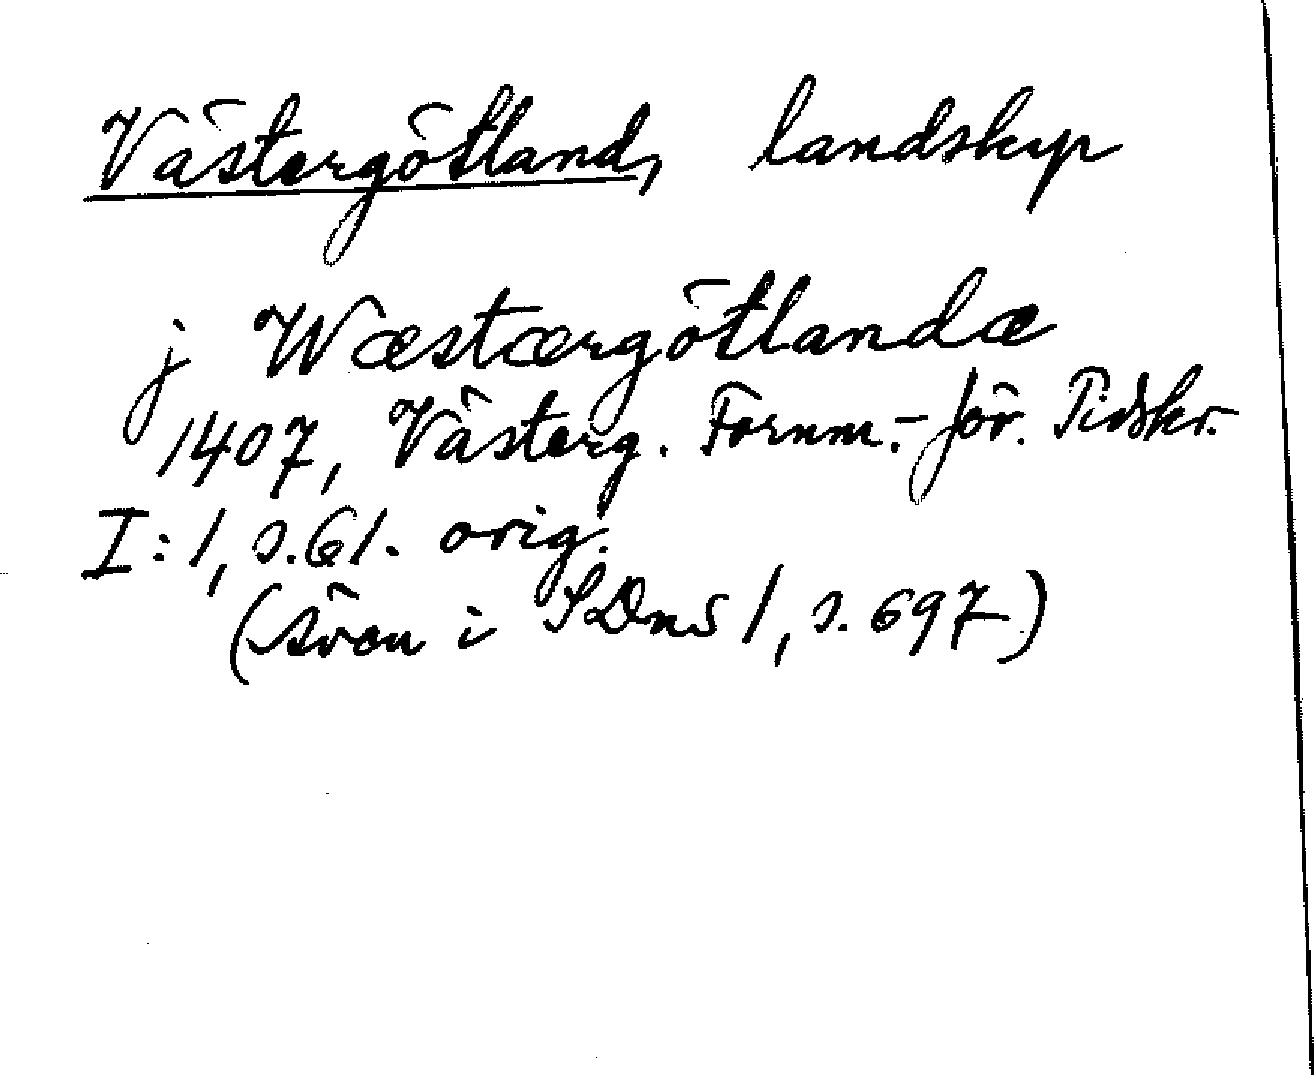 Västergötland, landskap
j Wæstærgötlandæ
1407, Västerg. Fornm.-för. Tidskr.
I:1, s.61. orig.
(även i SDns 1, s.697)